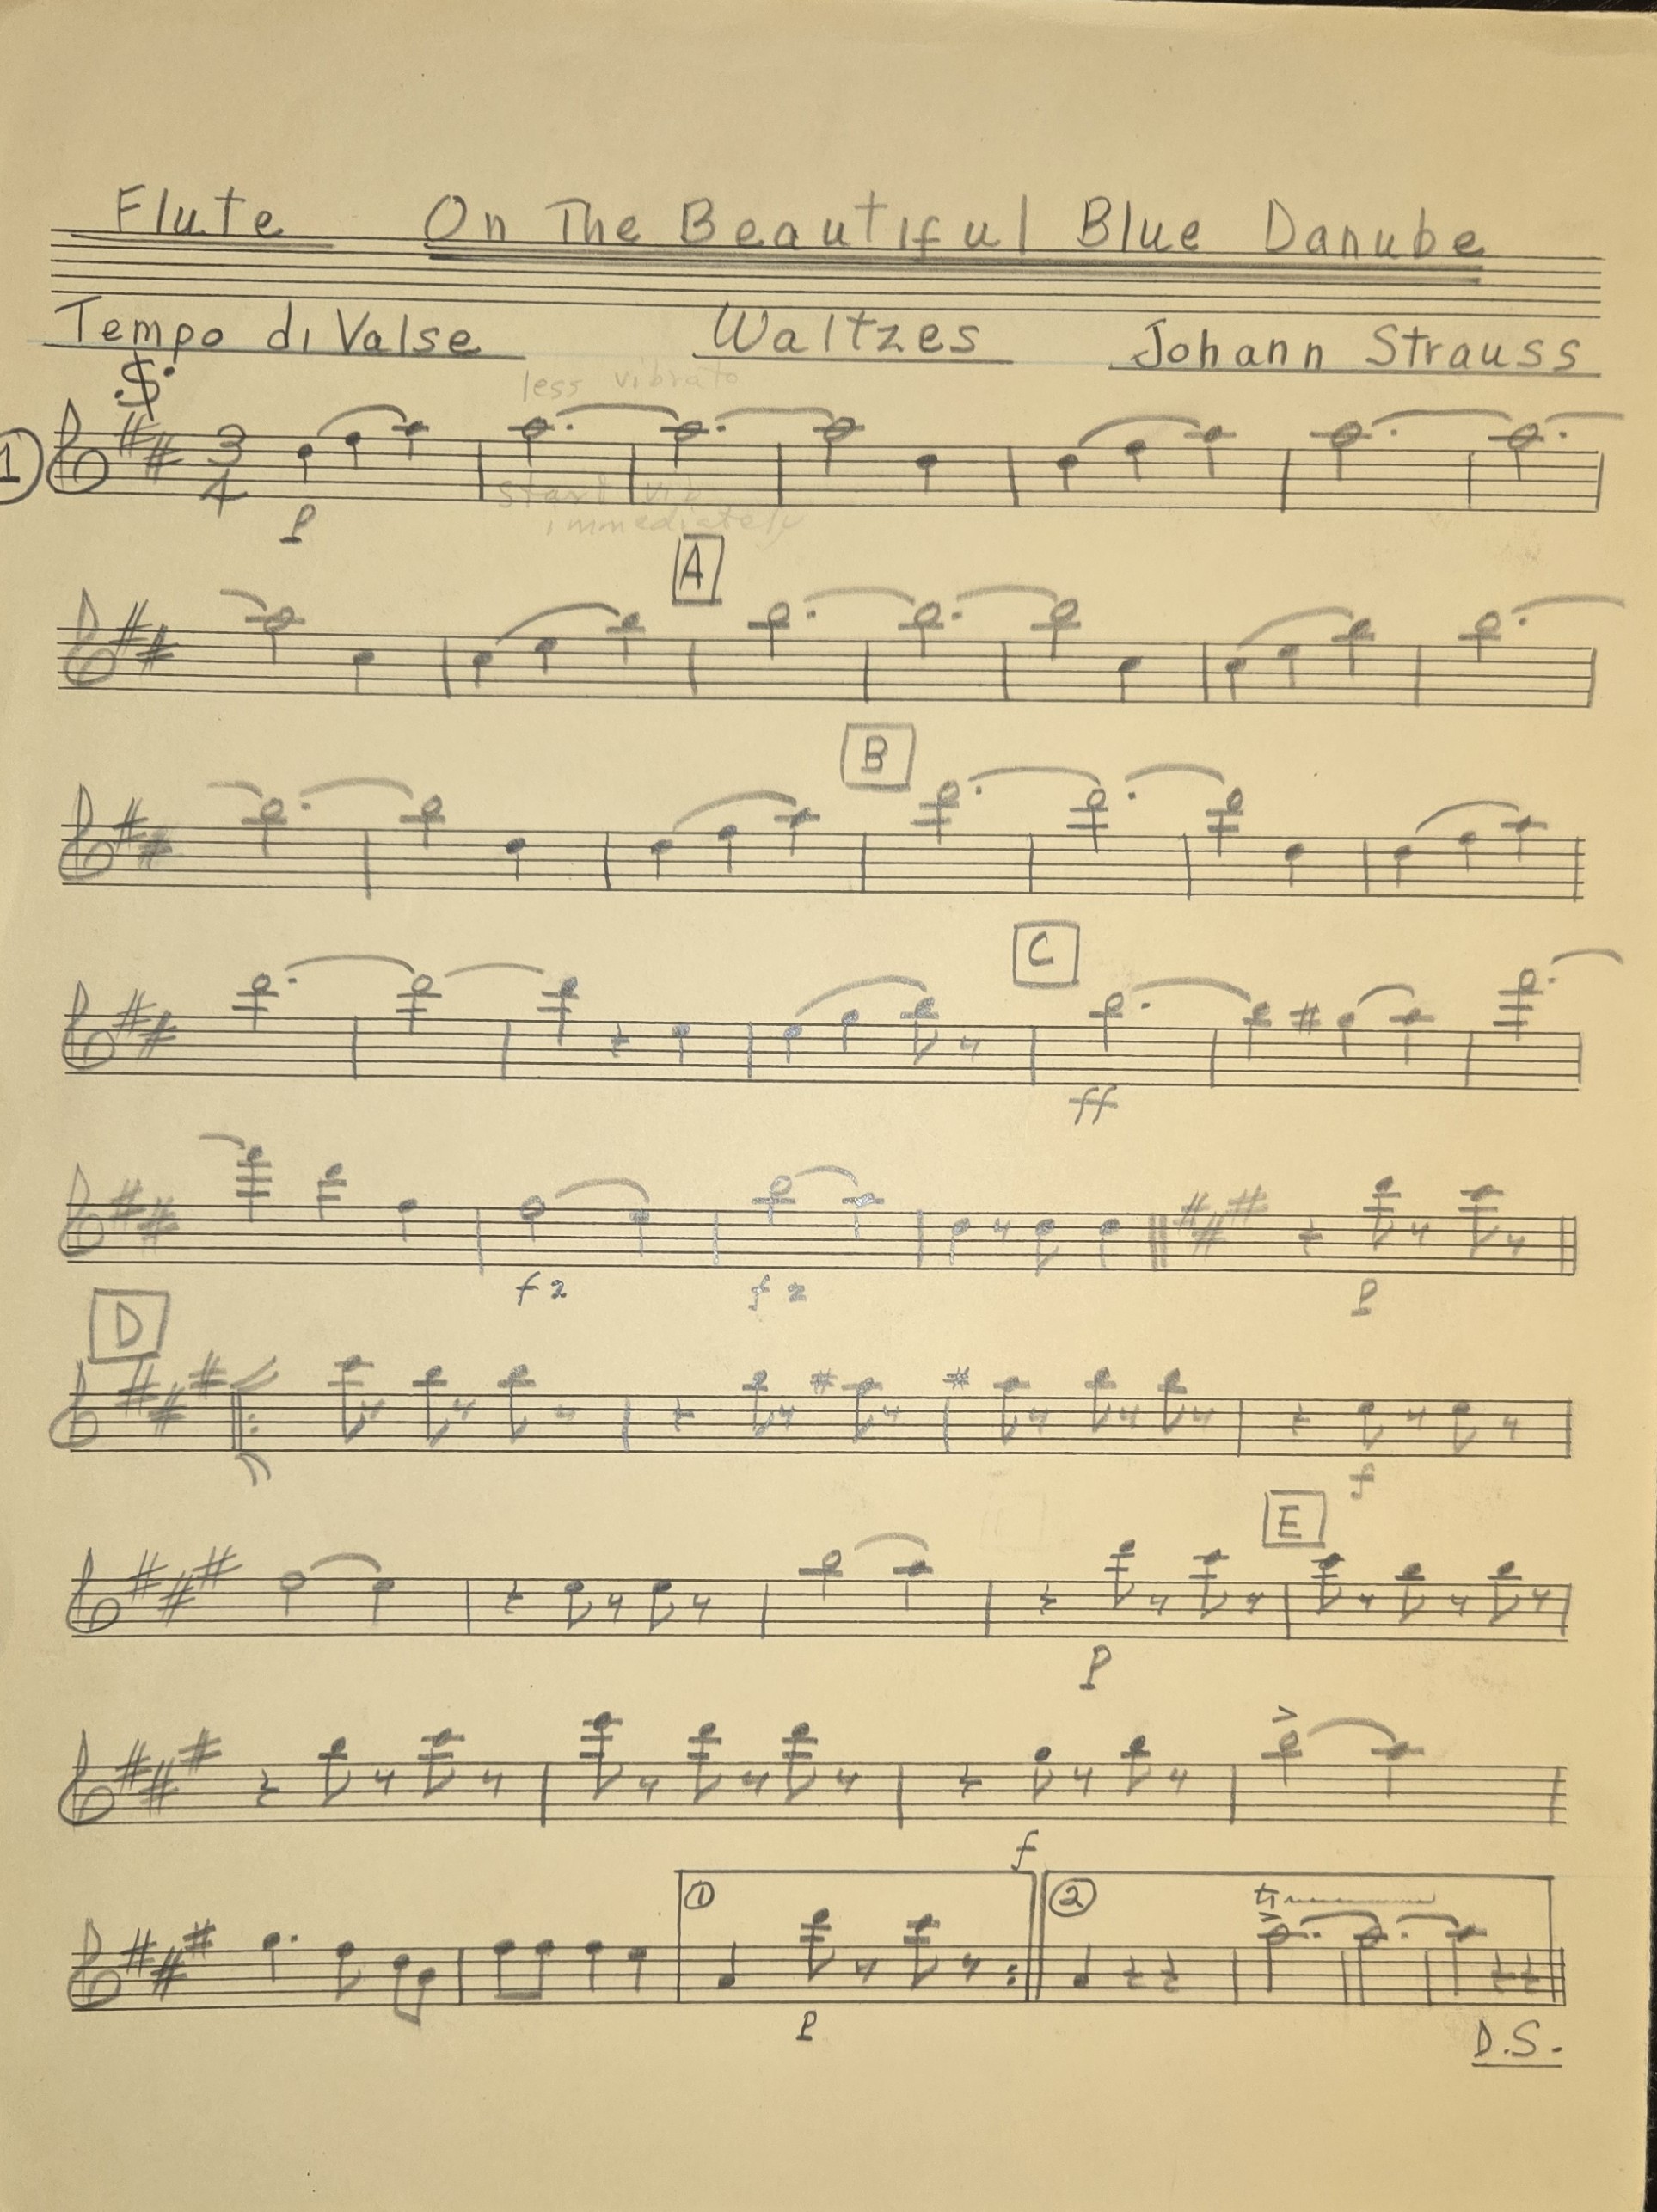 Flute On The Beautiful Blue Danube
Tempo di Valse Waltzes Johann Strauss
less vibrato
1
3
4
P
start vib
immediately
A
B
C
ff
f2 f2 P
D
f
E
P
f
1 2 tr
P
D.S.